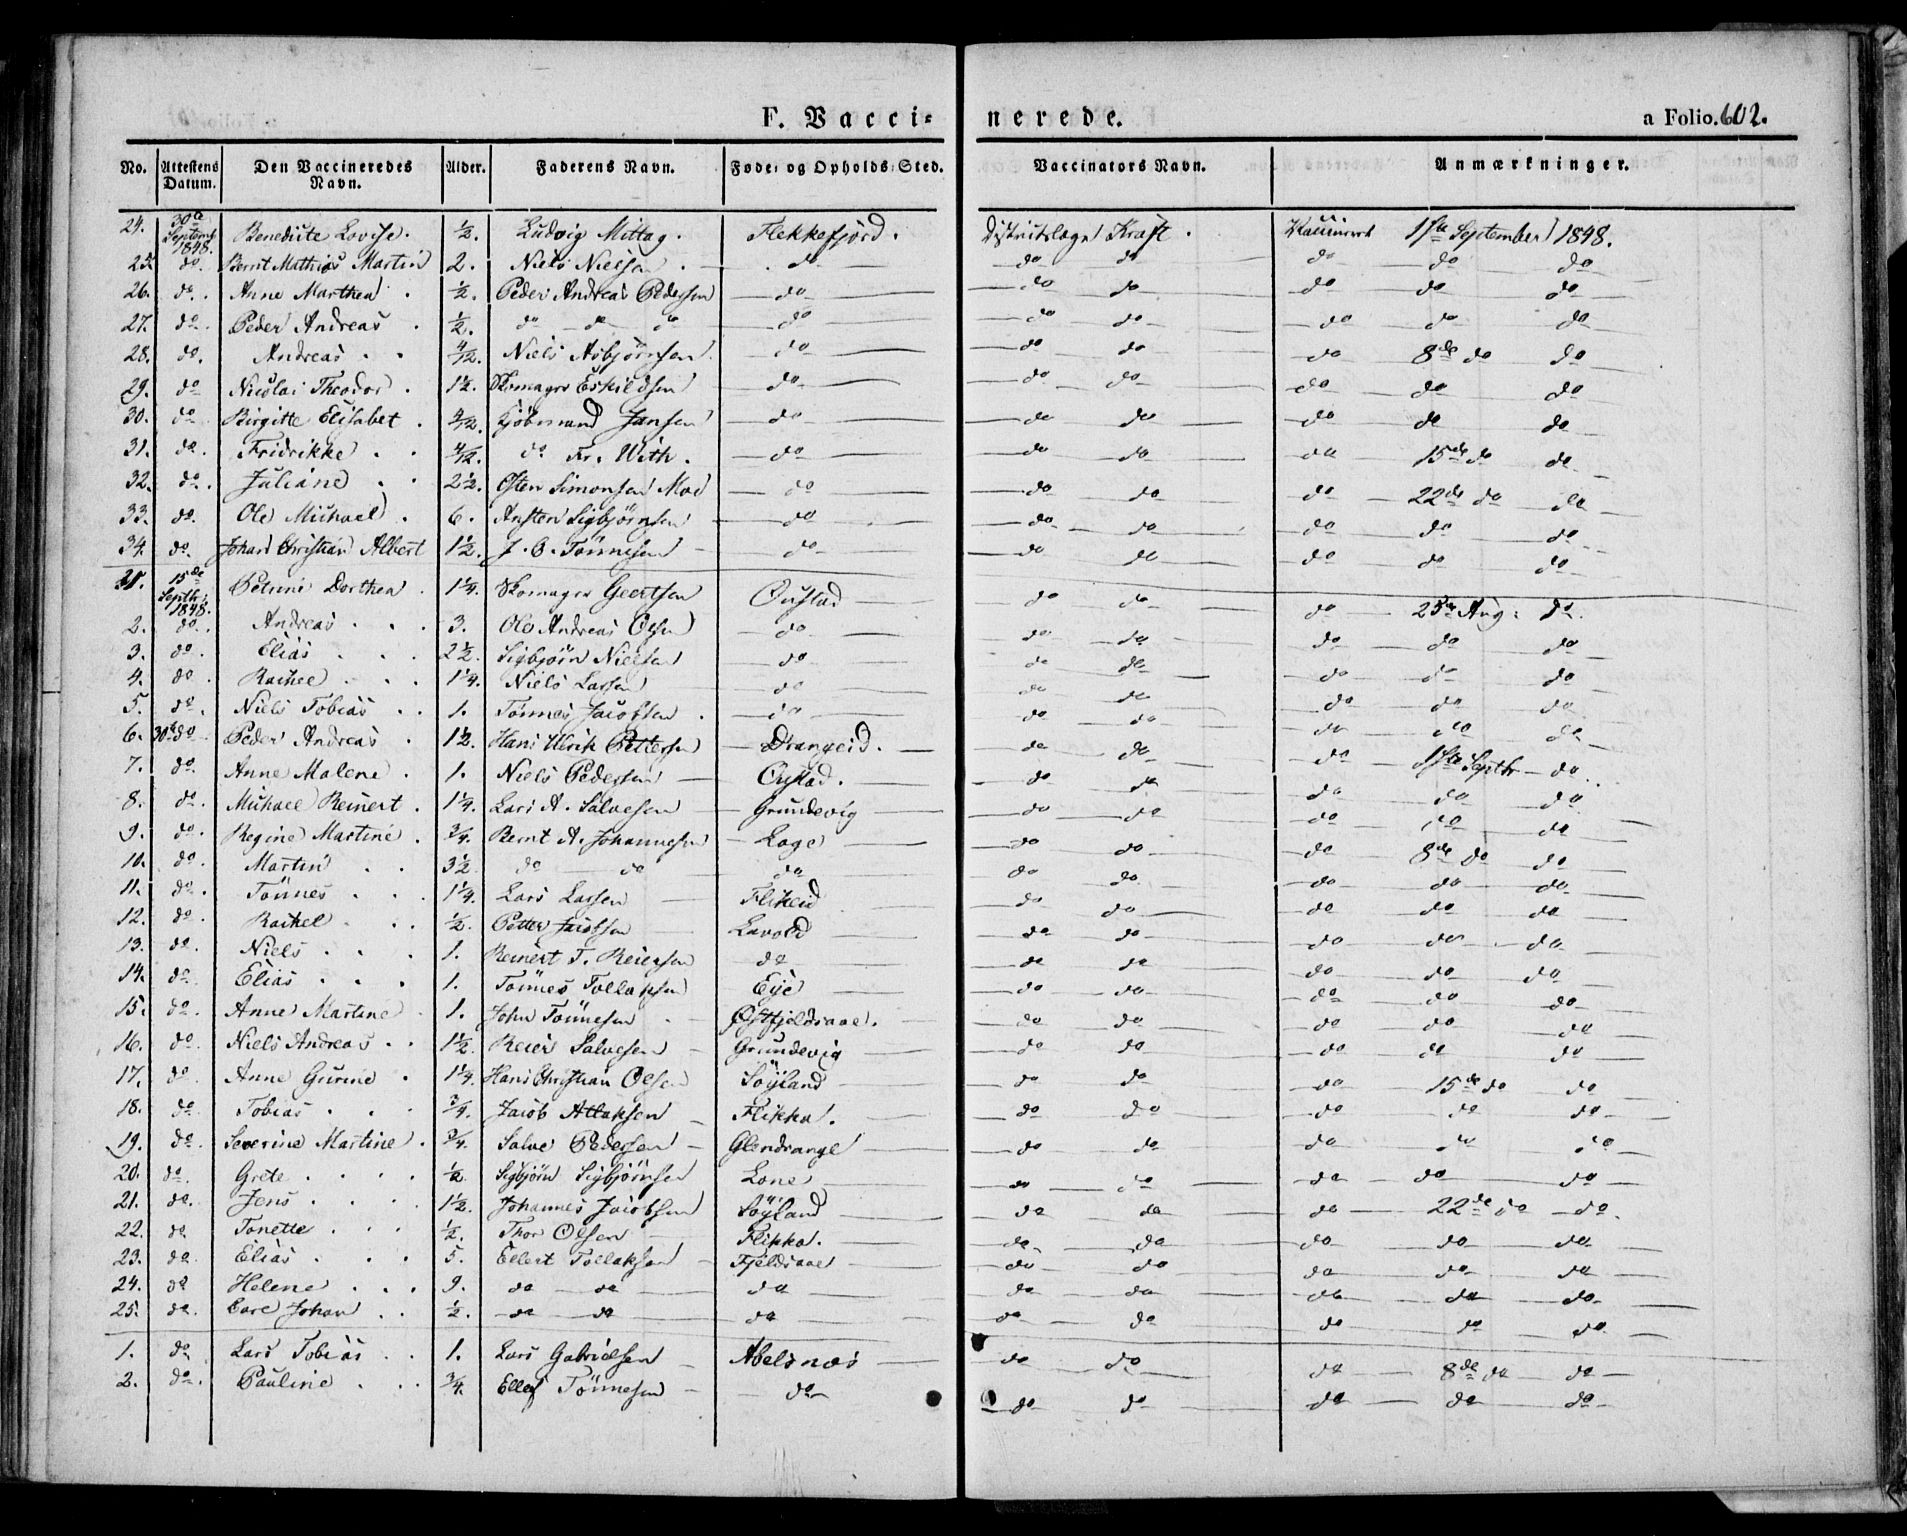 F. Vacci- nerede. a Folio. 602.
No. Attestens Datum. Den Vaccineredes Navn. Alder. Faderens Navn. Føde- og Opholds-Sted. Vaccinators Navn. Anmærkninger.
24. 30te Septemb 1848. Benedicte Lovise. ½. Ludvig Mittag. Flekkefjord. Distriktslæge Kraft. Vaccineret 1ste September 1848.
25. do. Bernt Mathias Martin 2. Niels Nielsen do do do do do do
26. do. Anne Marthea ½. Peder Andreas Pedersen do do do do do do
27. do. Peder Andreas ½. do do do do do do do do do
28. do. Andreas 4/12. Niels Asbjörnsen do do do do 8de do do
29. do Nicolai Theodor. 1½. Skomager Eskildsen do do do do do do
30. do Birgitte Elisabet 4/12. Kjöbmand Jansen do do do do do do
31. do. Fridrikke 4/12. do Fr. With. do do do do 15de do do
32. do. Juliane 2½. Osten Simonsen Moe do do do do 22de do do
33. do. Ole Michael. 6. Ansten Sigbjörnsen do do do do do do
34. do. Johan Christian Albert 1½. J. C. Tönnesen do do do do do do
15de Septbr. 1848. Petrine Dorthea 1¼. Skomager Geertsen do do do 25de Aug: do.
2. do. Andreas 3. Ole Andreas Olsen do do do do do do
3. do. Elias 2½. Sigbjörn Nielsen do do do do do do
4. do. Rachel 1¼. Niels Larsen do do do do do do
5. do. Niels Tobias 1. Tönnes Jacobsen do do do do do do
6. 30te do Peder Andreas 1½. Hans Ulrik Pettersen Drangeid. do do do do do
7. do. Anne Malene 1. Niels Pedersen do do do 1ste Septbr do
8. do. Michael Reinert 1¼. Lars A. Salvesen Grundevig do do do do do
9. do. Regine Martine ¾. Bernt A. Johannesen Loge do do do do do
10. do. Martin 3½ do do do do do do 8de do do
11. do. Tönnes 1¼. Lars Larsen Flikeid do do do do do
12. do. Rachel ½. Petter Jacobsen Lavold do do do do do
13. do. Niels 1. Reinert T. Reiersen do do do do do do
14. do. Elias 1. Tönnes Tollaksen Eije do do do do do
15. do. Anne Martine 1. John Tönnesen Østfjeldsaae. do do do do do
16. do. Niels Andreas 1½. Reier Salvesen Grundevig do do do do do
17. do Anne Gurine 1¼. Hans Christian Olsen Söyland do do do 15de do do
18. do Tobias ¾. Jacob Atlaksen Flikka. do do do do do
19. do. Severine Martine ¾. Salve Pedersen Glendrange do do do do do
20. do. Grete ½. Sigbjörn Sigbjörnsen Lone do do do do do
21. do. Jens 1½. Johannes Jacobsen Söyland do do do 22de do do.
22. do Tonette ½. Thor Olsen Flikka. do do do do do
23. do. Elias 5. Ellert Tollaksen Fjeldsaae do do do do do
24. do Helene 9. do do do do do do do do
25. do. Carl Johan ½. do do do do do do do do
1. do Lars Tobias 1. Lars Gabrielsen Abelsnæs do do do 8de do do
2. do. Pauline ¾. Ellef Tönnesen do do do do do do